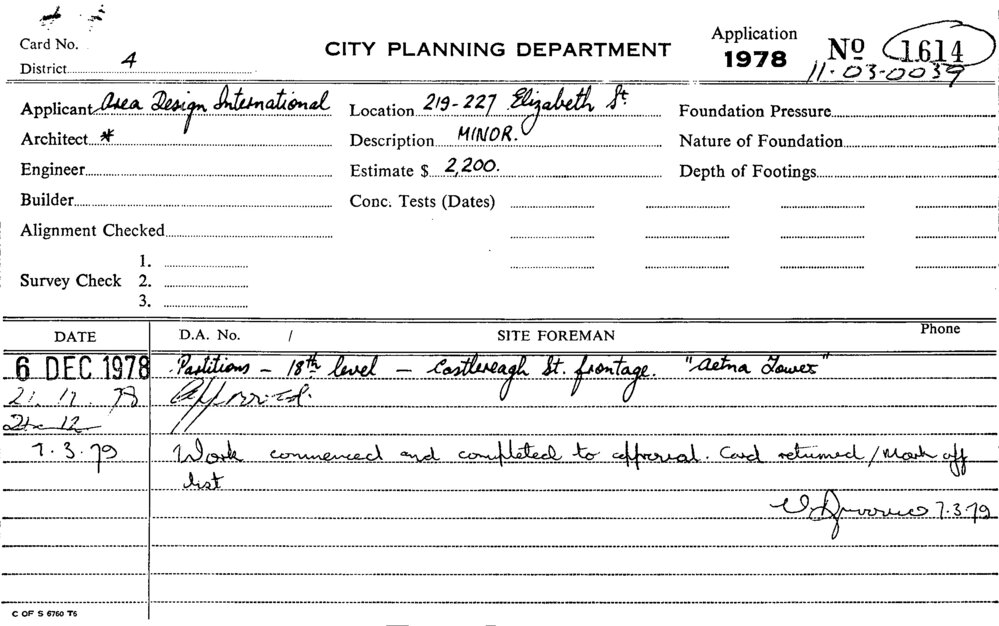 Card No.
CITY PLANNING DEPARTMENT
Application
1978
No 1614
District 4
11-03-0039
Applicant Area Design International
Location 219-227 Elizabeth St.
Foundation Pressure
Architect *
Description MINOR.
Nature of Foundation
Engineer
Estimate $ 2,200.
Depth of Footings
Builder
Conc. Tests (Dates)
Alignment Checked
1.
Survey Check 2.
3.
DATE
D.A. No. /
SITE FOREMAN
Phone
6 DEC 1978 Partitions - 18th level - Castlereagh St. frontage. "Aetna Tower"
21. 12. 78 Approved.
21-12 "
7.3.79 Work commenced and completed to approval. Card returned / Mark off
list
7.3.79
C OF S 6760 T6